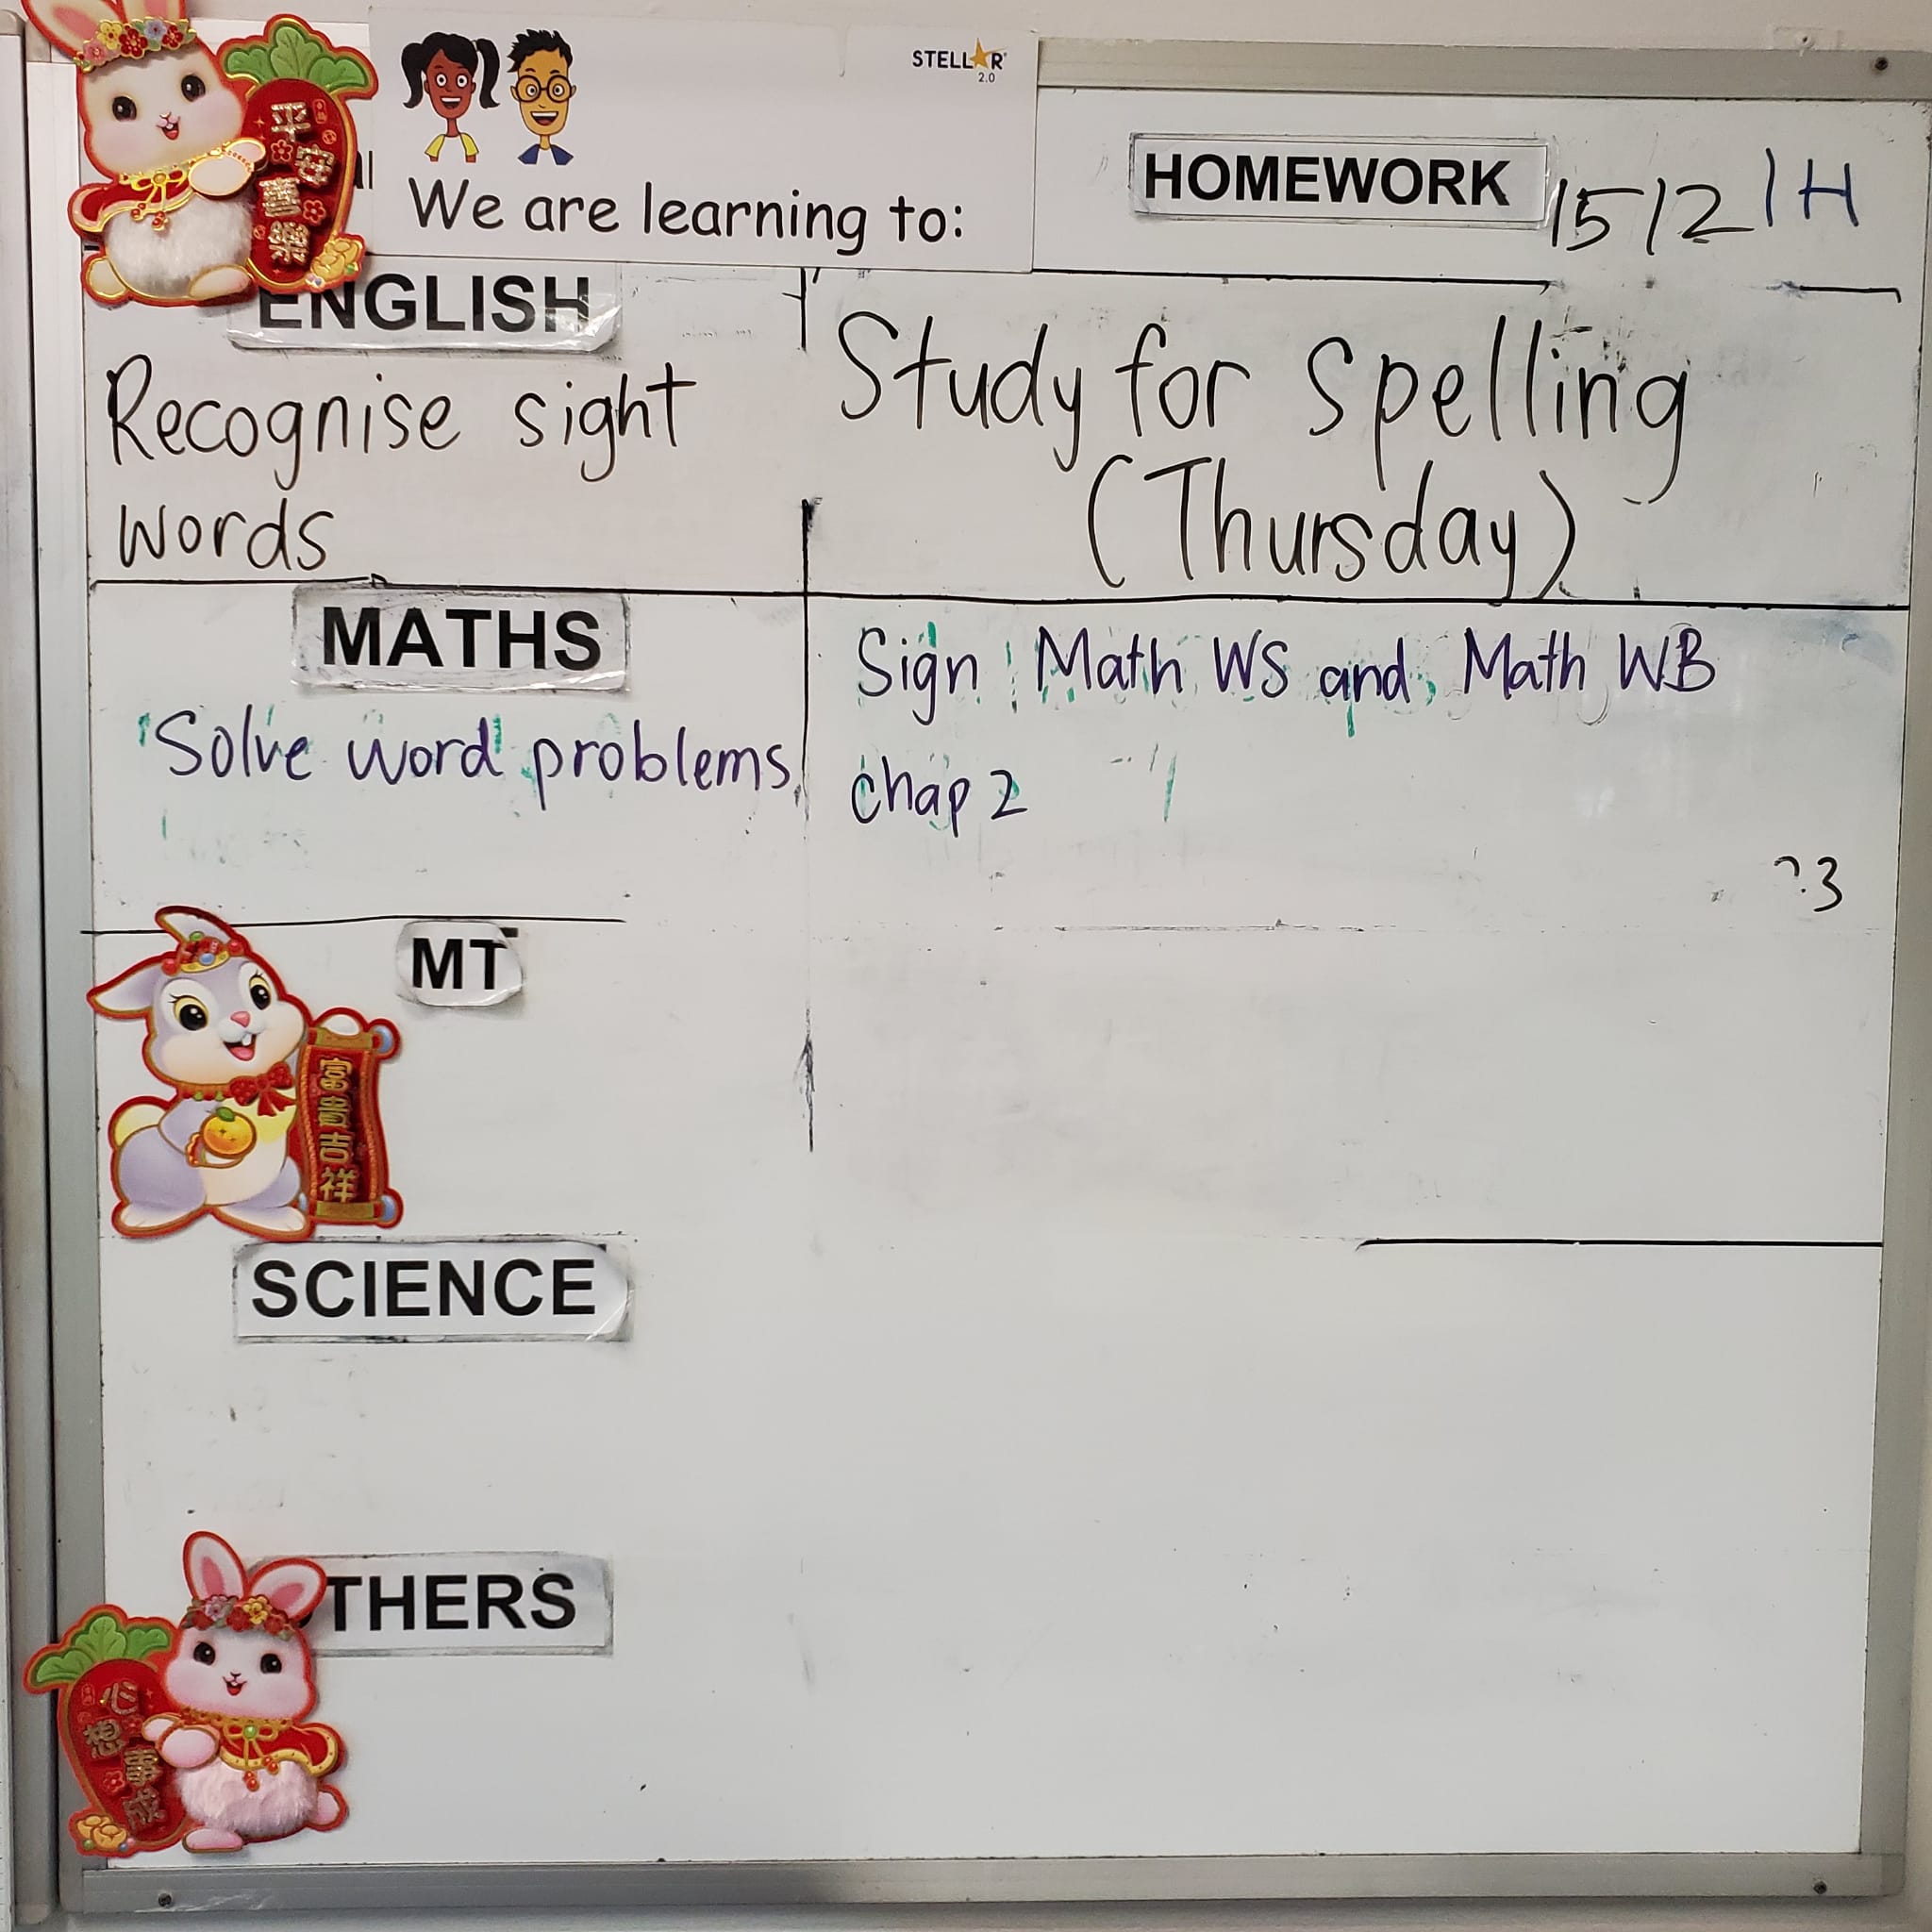 平安喜樂
STELLAR
2.0
We are learning to:
HOMEWORK 15/2 1H
ENGLISH
Recognise sight
words
Study for spelling
(Thursday)
MATHS
Solve word problems
Sign Math WS and Math WB
chap 2
3
MT
富貴吉祥
SCIENCE
THERS
心想事成